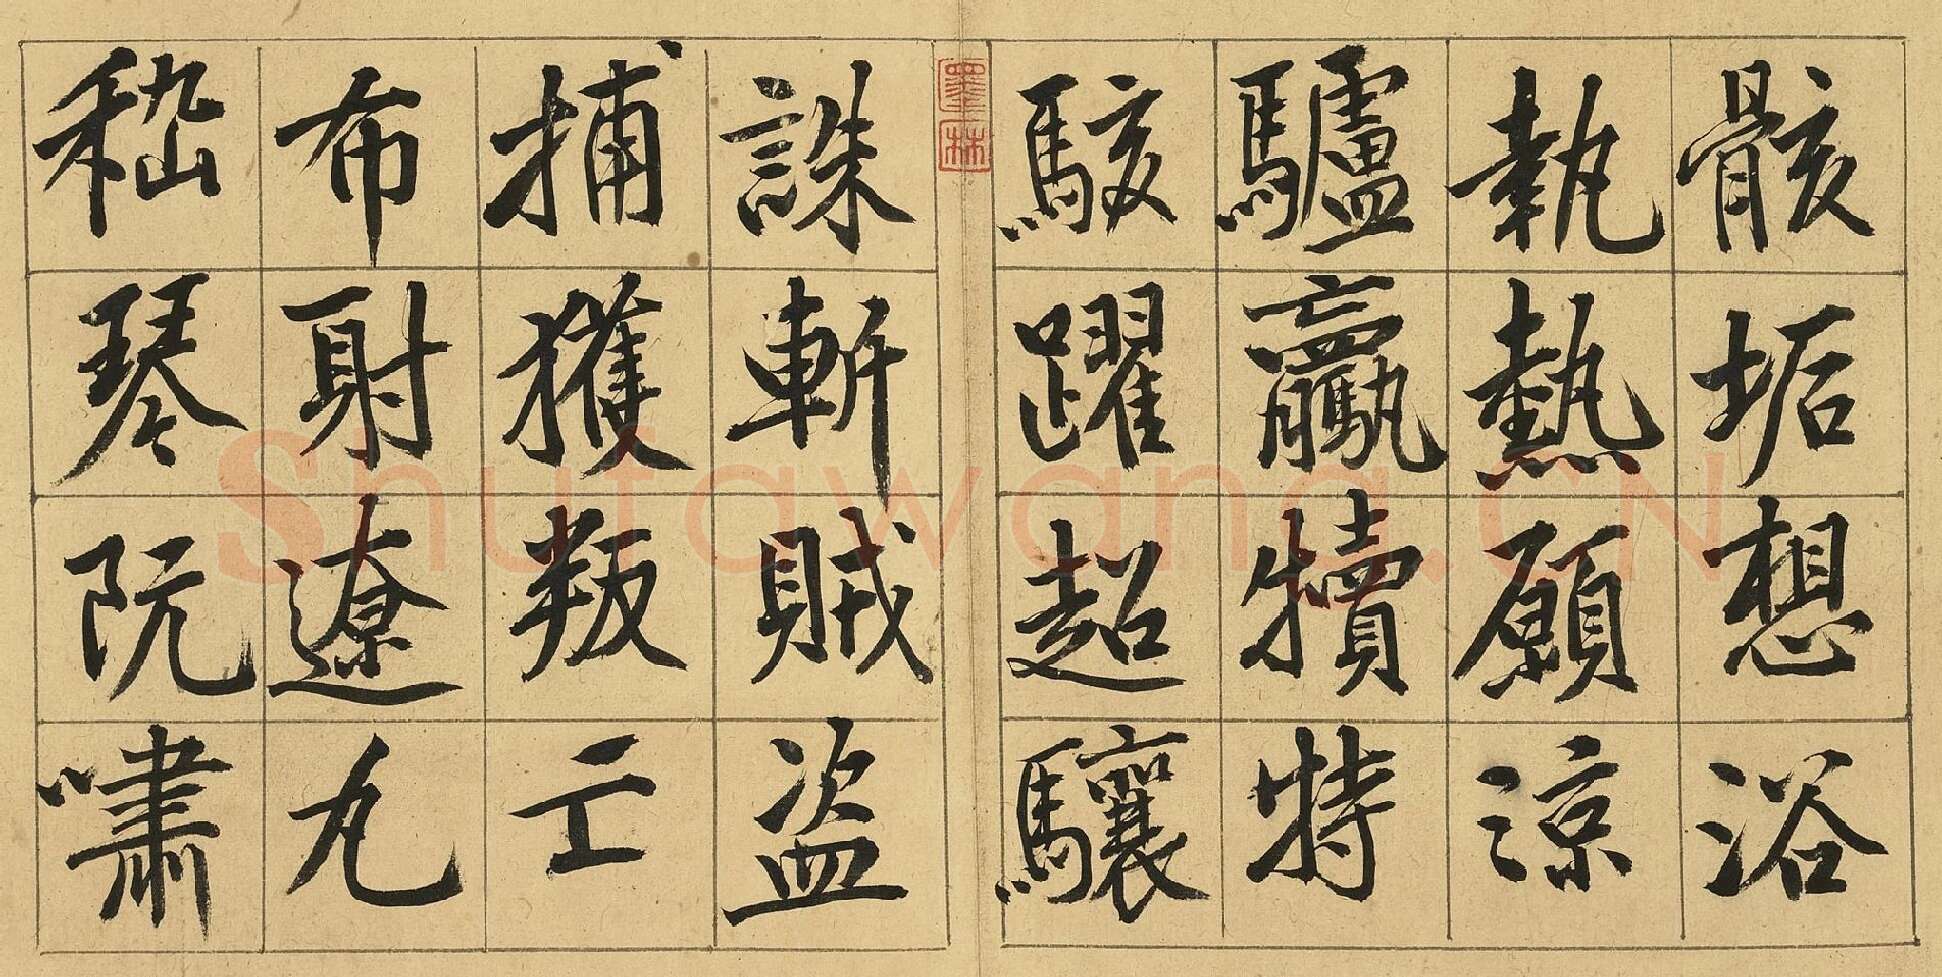 骸垢想浴
執熱願涼
驢騾犢特
駭躍超驤
誅斬賊盜
捕獲叛亡
布射遼丸
嵇琴阮嘯
墨林
Shufawang.CN